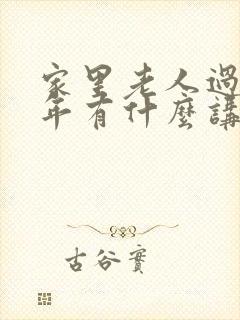 家里老人過
年有什麼講
古谷實